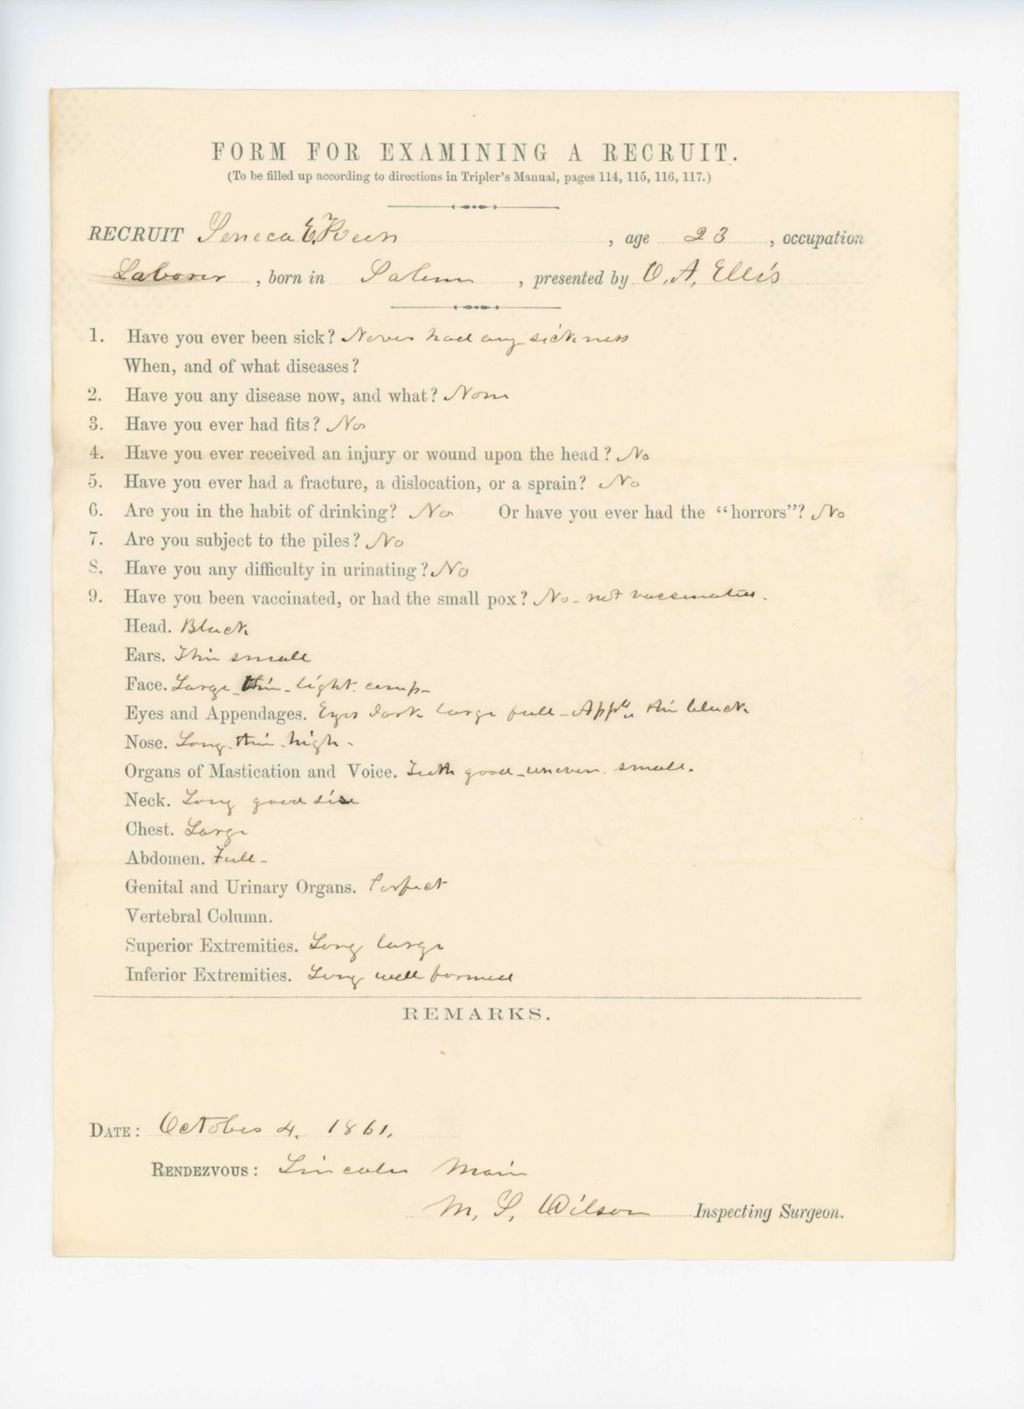 FORM FOR EXAMINING A RECRUIT.
(To be filled up according to directions in Tripler's Manual, pages 114, 115, 116, 117.)
RECRUIT Seneca E, age 23, occupation
Laborer, born in Salem, presented by O. A. Ellis
1. Have you ever been sick? Never had any sickness
When, and of what diseases?
2. Have you any disease now, and what? None
3. Have you ever had fits? No
4. Have you ever received an injury or wound upon the head? No
5. Have you ever had a fracture, a dislocation, or a sprain? No
6. Are you in the habit of drinking? No Or have you ever had the "horrors"? No
7. Are you subject to the piles? No
8. Have you any difficulty in urinating? No
9. Have you been vaccinated, or had the small pox? No - not
Head. Black
Ears. Thin small
Face. Large - thin - light comp -
Eyes and Appendages. Eyes dark large full - thin black
Nose. Long - thin - high -
Organs of Mastication and Voice. Teeth good - uneven. small.
Neck. Long good size
Chest. Large
Abdomen. Full -
Genital and Urinary Organs. Perfect
Vertebral Column.
Superior Extremities. Long large
Inferior Extremities. Long well formed
REMARKS.
DATE: October 4, 1861,
RENDEZVOUS: Lincoln Main
M, S, Wilson Inspecting Surgeon.